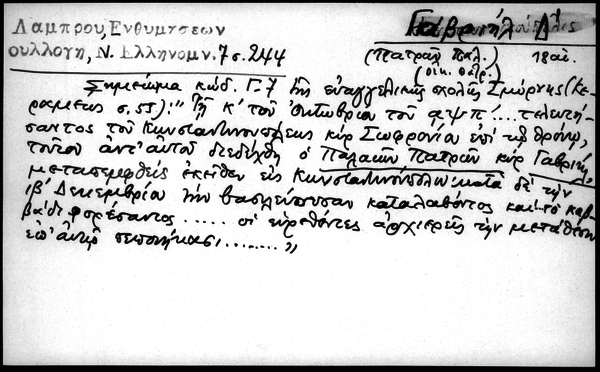 Λαμπρου, Ενθυμησεων
συλλογη, Ν. Ελληνομν. 7 σ. 244
Γαβριήλ Δ'
(Πατρῶν Παλ.) 18 αἰ.
(οἰκ. Θάτρ.)
Σημείωμα κώδ. Γ-7 τῆς εὐαγγελικῆς σχολῆς Σμύρνης (Κε-
ραμέως σ. 55): "Τῇ κ' τοῦ Ὀκτωβρίου τοῦ αψπ'.... τελευτή-
σαντος τοῦ Κωνσταντινουπόλεως κὺρ Σωφρονίου ἐπὶ τῷ θρόνῳ,
τοῦτον ἀντ' αὐτοῦ διεδέχθη ὁ Παλαιῶν Πατρῶν κὺρ Γαβριήλ,
μεταπεμφθεὶς ἐκεῖθεν εἰς Κωνσταντινούπολιν· κατὰ δὲ τὴν
ιβ' Δεκεμβρίου τὴν βασιλεύουσαν καταλαβόντος καὶ τὸ καβ-
βάδι φορέσαντος ..... οἱ εὑρεθέντες ἀρχιερεῖς τὴν μετάθεσιν
ἐπ' αὐτῷ πεποιήκασι ........ "